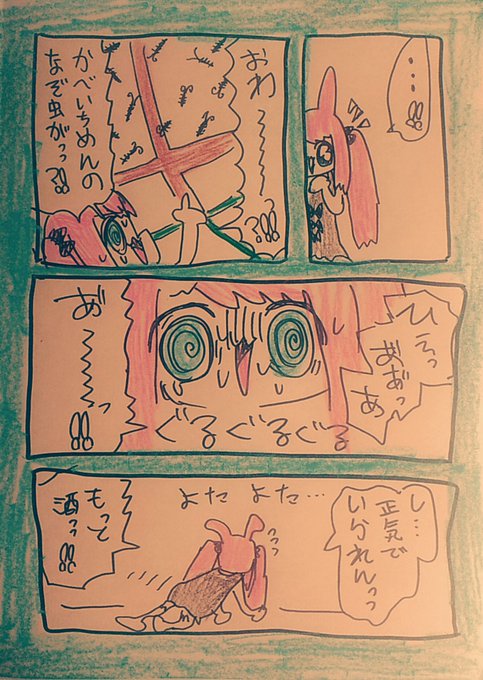 …!!
おわ
〜〜〜〜?!!
かべいちめんの
なぞ虫がっっ?!!
ひえっ
あぁっ〜
あ
ぐるぐるぐる
あ〜〜〜〜っ!!
し…
正気で
いられんっっ
よた よた…
もって
酒っっ!!